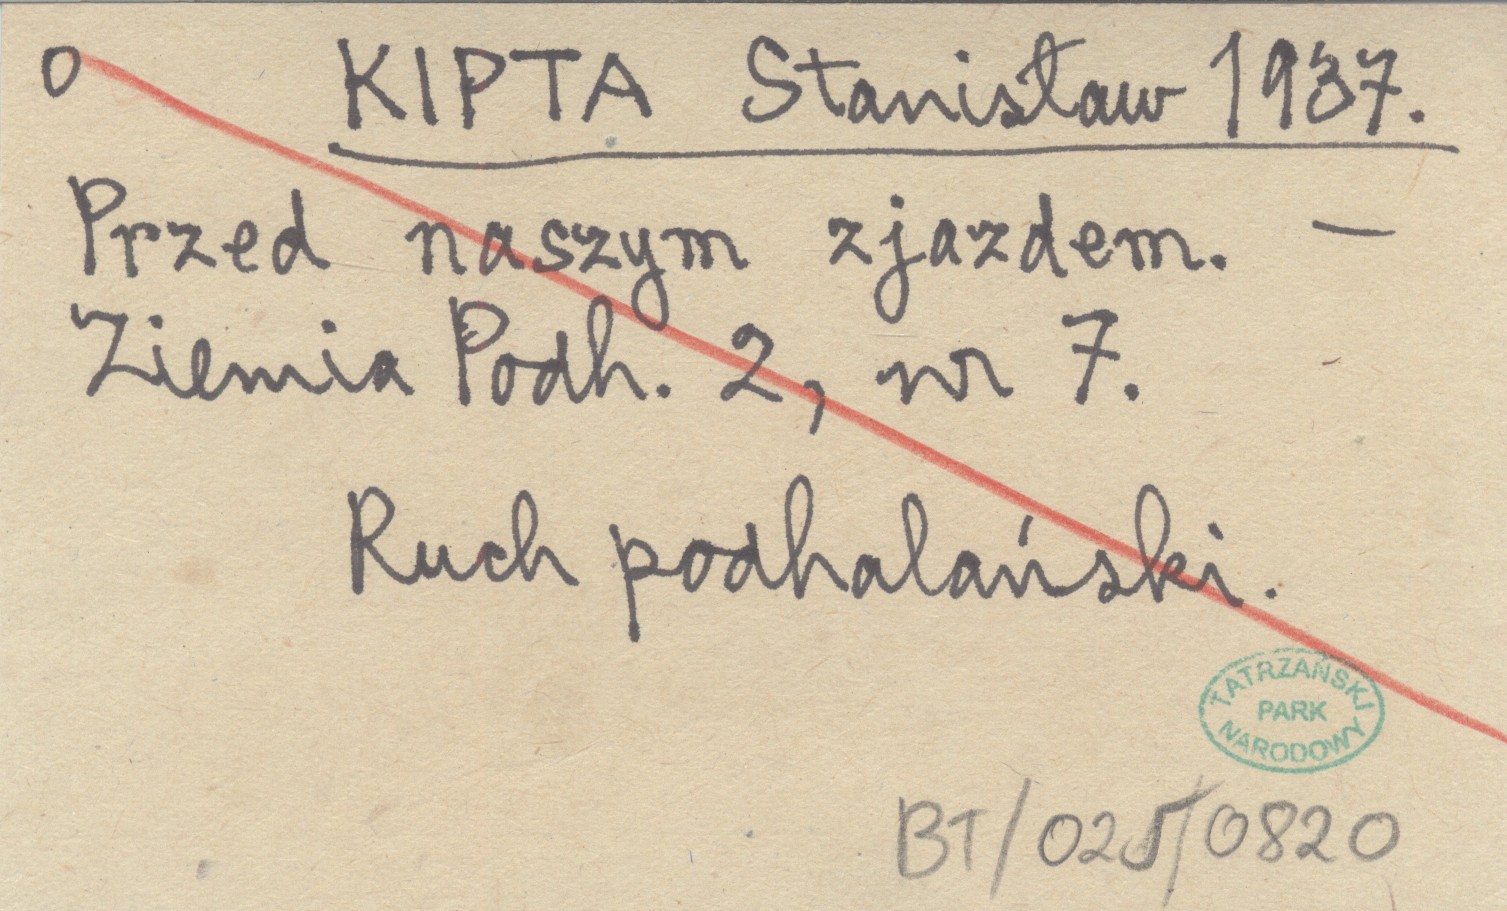 o KIPTA Stanisław 1937.
Przed naszym zjazdem. —
Ziemia Podh. 2, nr 7.
Ruch podhalański.
TATRZAŃSKI
PARK
NARODOWY
BT/025/0820